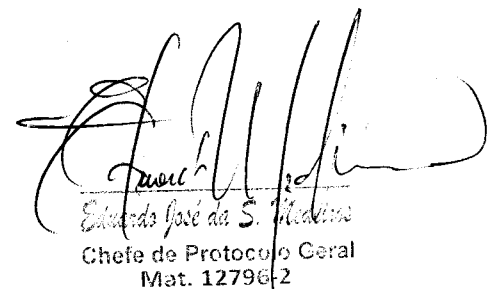 Eduardo José da S. Medeiros
Chefe de Protocolo Geral
Mat. 12796-2